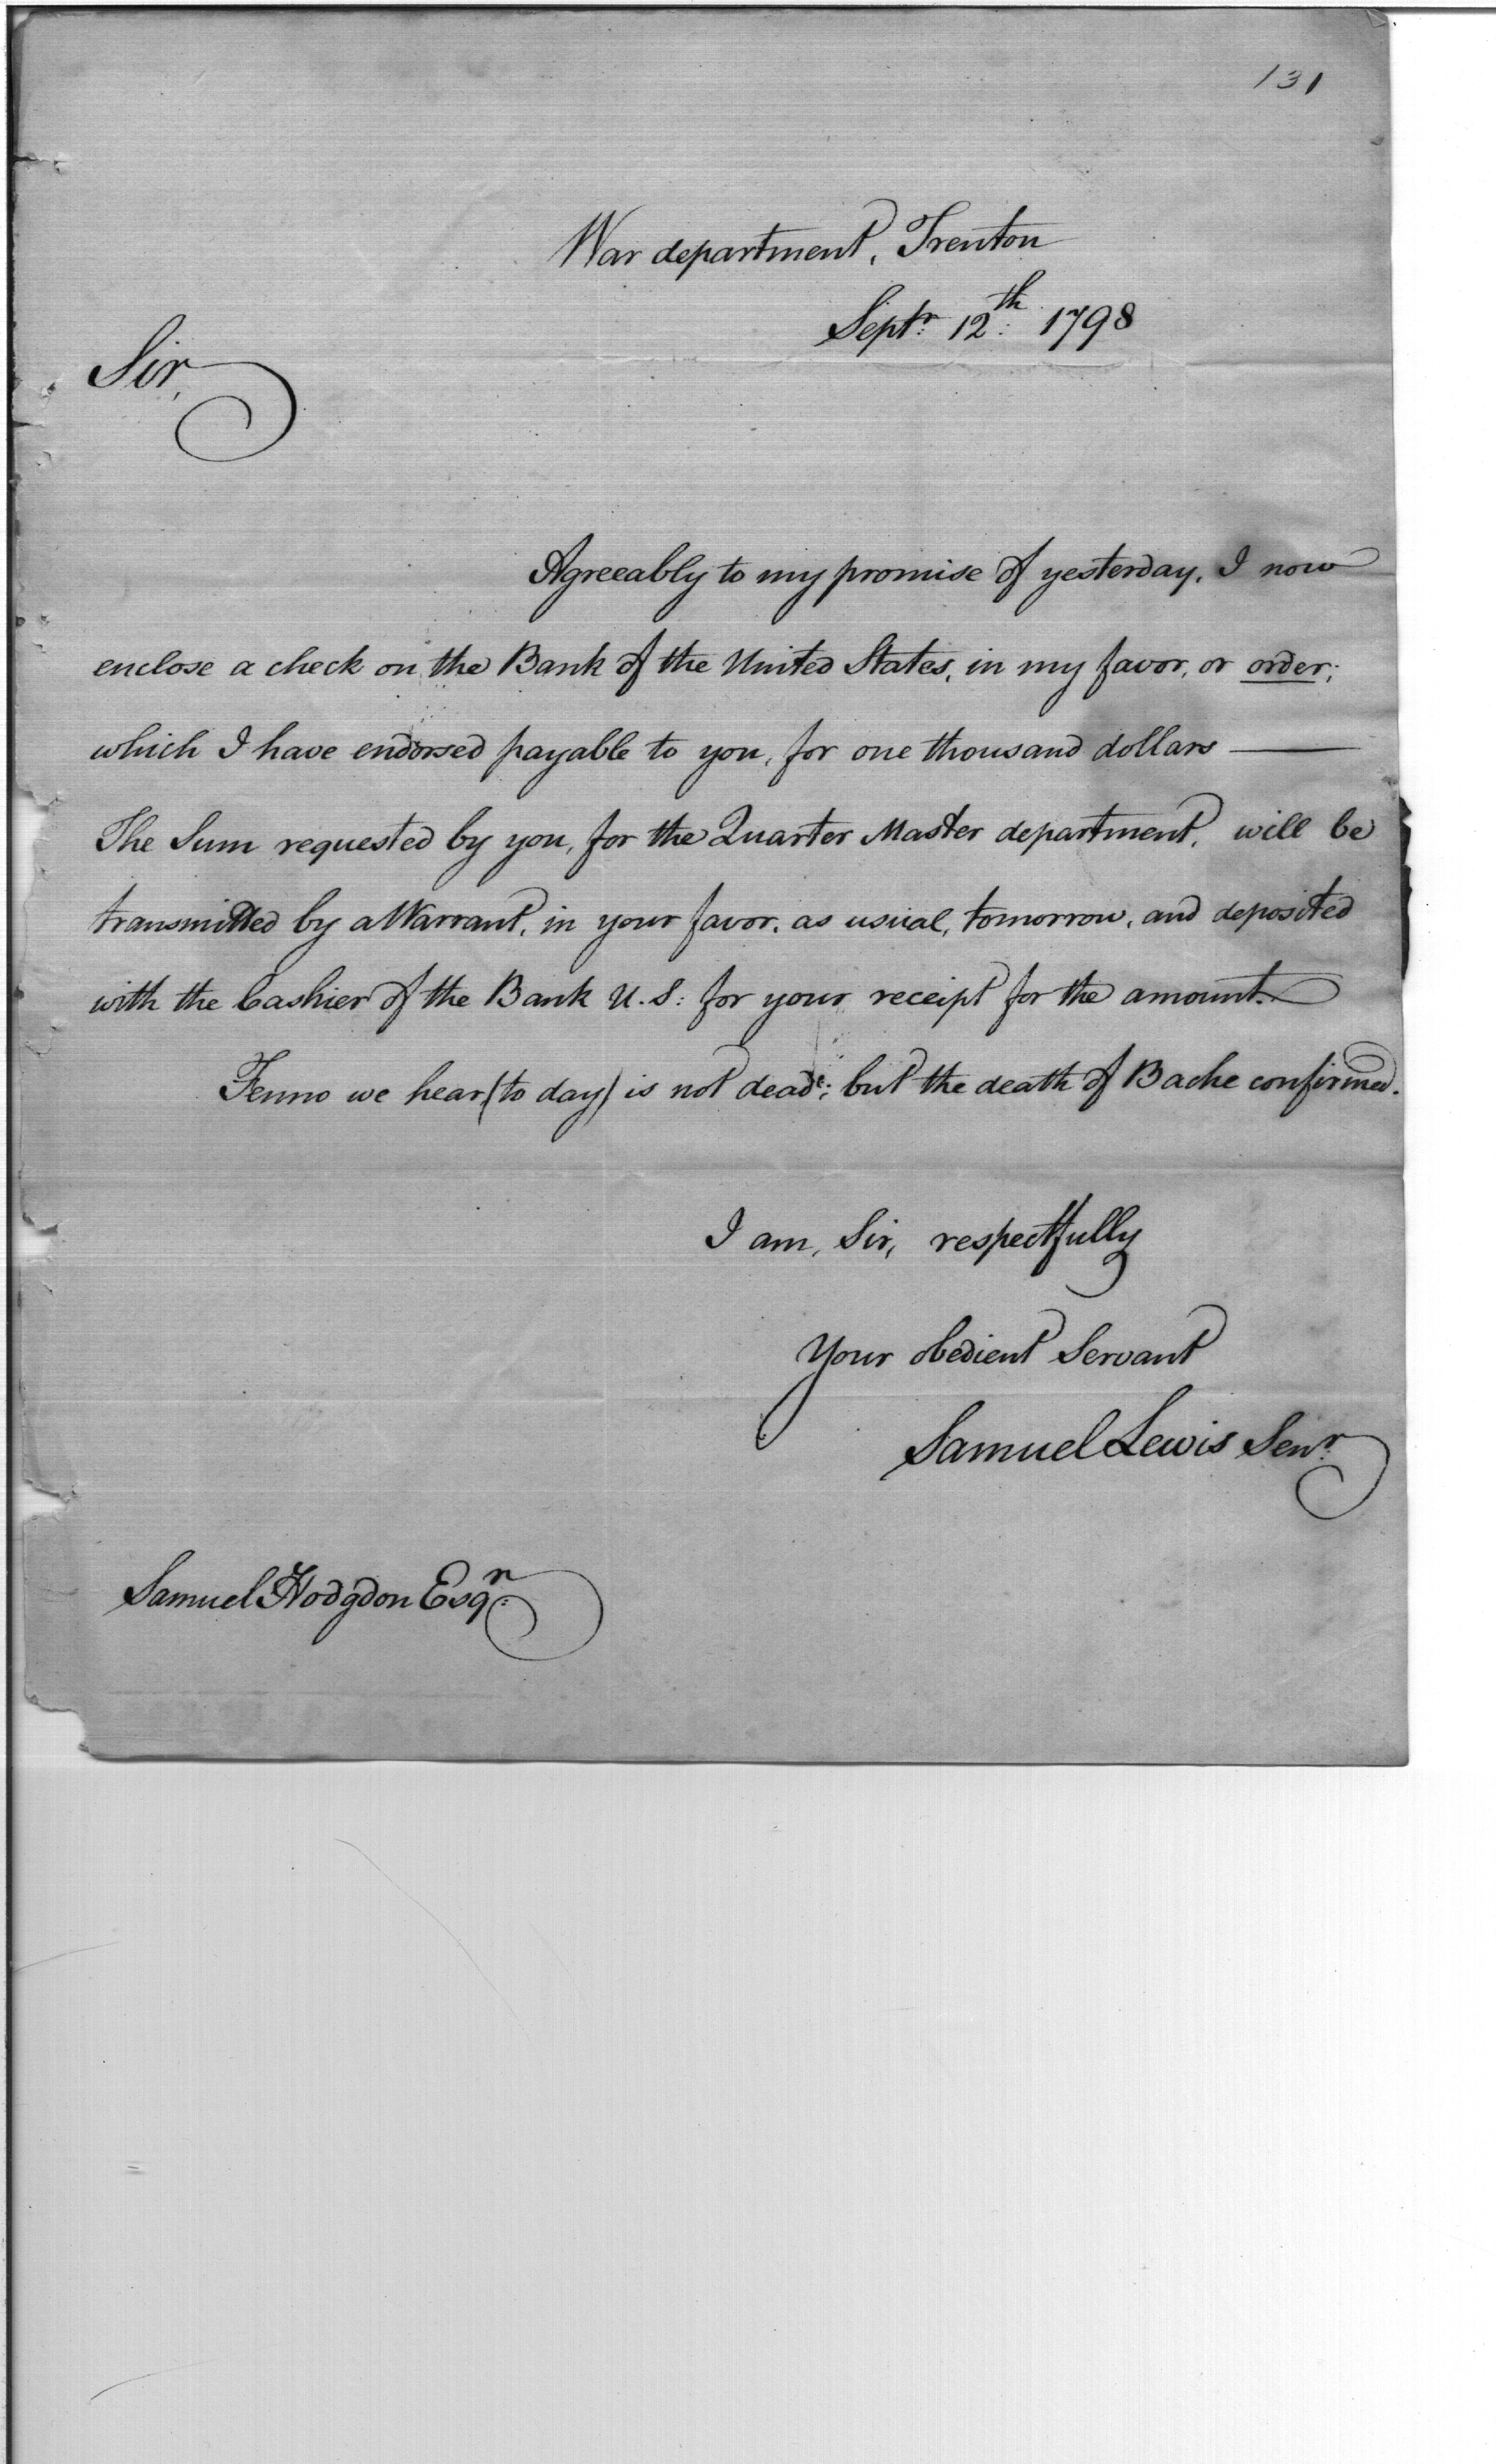 131
War department, Trenton
Septr. 12th. 1798
Sir,
Agreeably to my promise of yesterday, I now
enclose a check on the Bank of the United States, in my favor, or order;
which I have endorsed payable to you, for one thousand dollars ——
The Sum requested by you, for the Quarter Master department, will be
transmitted by a Warrant, in your favor, as usual, tomorrow, and deposited
with the Cashier of the Bank U.S: for your receipt for the amount.
Fenno we hear (to day) is not dead; but the death of Bache confirmed.
I am, Sir, respectfully
Your obedient Servant
Samuel Lewis Senr.
Samuel Hodgdon Esqr.